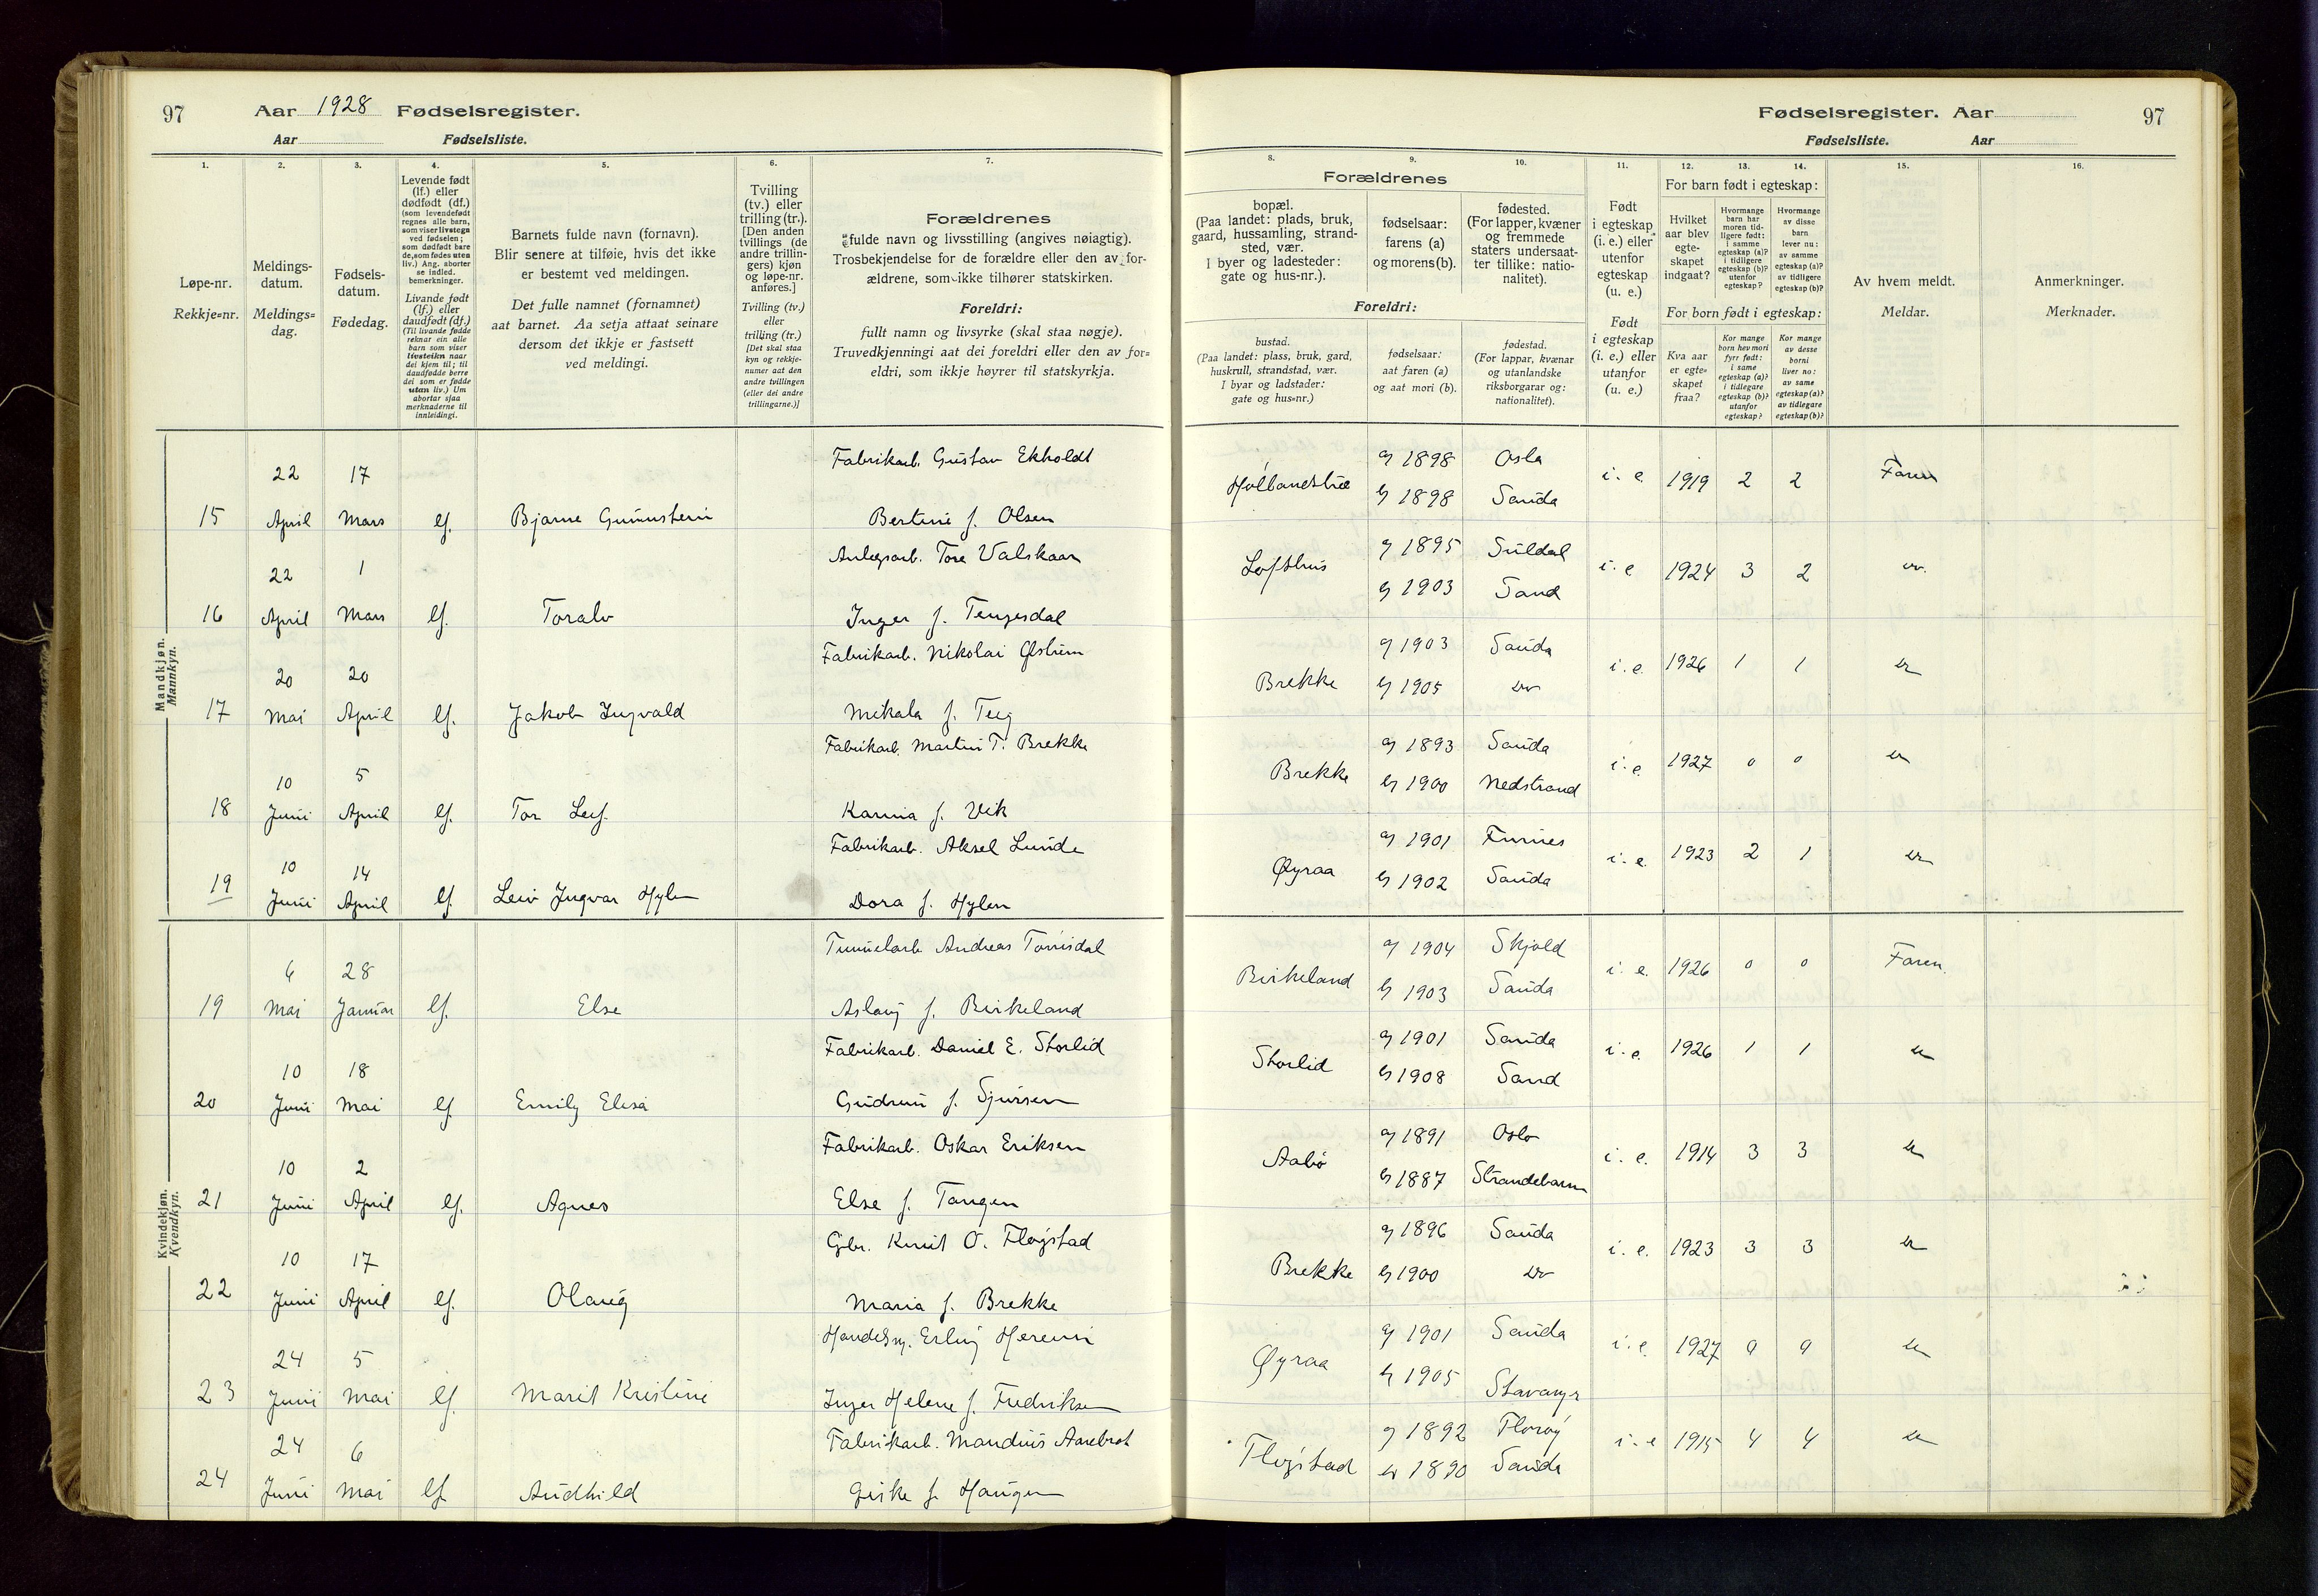 97 Aar 1928 Fødselsregister.
Aar Fødselsliste.
1. 2. 3. 4. 5. 6. 7.
Løpe-nr.
Rekkje-nr.
Meldings-
datum.
Meldings-
dag.
Fødsels-
datum.
Fødedag.
Levende født
(lf.) eller
dødfødt (df.)
(som levendefødt
regnes alle barn,
som viser livstegn
ved fødselen;
som dødfødt bare
de, som fødes uten
liv.) Ang. aborter
se indled.
bemerkninger.
Livande født
(lf.) eller
daudfødt (df.)
(Til livande fødde
reknar ein alle
barn som viser
livsteikn naar
dei kjem til; til
daudfødde berre
dei som er fødde
utan liv.) Um
abortar sjaa
merknaderne til
innleidingi.
Barnets fulde navn (fornavn).
Blir senere at tilføie, hvis det ikke
er bestemt ved meldingen.
Det fulle namnet (fornamnet)
aat barnet. Aa setja attaat seinare
dersom det ikkje er fastsett
ved meldingi.
Tvilling
(tv.) eller
trilling (tr.).
[Den anden
tvillings (de
andre trillin-
gers) kjøn
og løpe-nr.
anføres.]
Tvilling (tv.)
eller
trilling (tr.)
[Det skal staa
kyn og rekkje-
numer aat den
andre tvillingen
(eller dei andre
trillingarne.)]
Forældrenes
fulde navn og livsstilling (angives nøiagtig).
Trosbekjendelse for de forældre eller den av for-
ældrene, som ikke tilhører statskirken.
Foreldri:
fullt namn og livsyrke (skal staa nøgje).
Truvedkjenningi aat dei foreldri eller den av for-
eldri, som ikkje høyrer til statskyrkja.
Mandkjøn.
Mannkyn.
22 17 Fabrikarb. Gustav Ekholdt
15 April Mars lf. Bjarne Gunnstein Bertine f. Olsen
22 1 Anlegsarb. Tore Valskaar
16 April Mars lf. Toralv Inger f. Tengesdal
20 20 Fabrikarb. Nikolai
17 Mai April lf. Jakob Ingvald Mikala f. Teig
10 5 Fabrikarb. Martin T. Brekke
18 Juni April lf. Tor Leif. Karina f. Vik
10 14 Fabrikarb. Aksel Lunde
19 Juni April lf. Leiv Ingvar Hylen Dora f. Hylen
Kvindekjøn.
Kvendkyn.
6 28 Tunnelarb. Andreas Tonisdal
19 Mai Januar lf. Else Aslaug f. Birkeland
10 18 Fabrikarb. Daniel E. Storlid
20 Juni Mai lf. Emily Elisa Gudrun f. Sjursen
10 2 Fabrikarb. Oskar Eriksen
21 Juni April lf. Agnes Else f. Tangen
10 17 Gbr. Knut O. Fløgstad
22 Juni April lf. Olaug Maria f. Brekke
24 5 Handelsm. Erling Herheim
23 Juni Mai lf. Marit Kristine Inger Helene f. Fredriksen
24 6 Fabrikarb. Mandius Aarebrot
24 Juni Mai lf. Audhild Giske f. Haugen
Fødselsregister. Aar 97
Fødselsliste. Aar
8. 9. 10. 11. 12. 13. 14. 15. 16.
Forældrenes
bopæl.
(Paa landet: plads, bruk,
gaard, hussamling, strand-
sted, vær.
I byer og ladesteder:
gate og hus-nr.).
fødselsaar:
farens (a)
og morens (b).
fødested.
(For lapper, kvæner
og fremmede
staters undersaat-
ter tillike: natio-
nalitet).
Foreldri:
bustad.
(Paa landet: plass, bruk, gard,
huskrull, strandstad, vær.
I byar og ladstader:
gate og hus-nr.)
fødselsaar:
aat faren (a)
og aat mori (b).
fødestad.
(For lappar, kvænar
og utanlandske
riksborgarar og:
nationalitet).
Født
i egteskap
(i. e.) eller
utenfor
egteskap
(u. e.)
Født
i egteskap
(i. e.) eller
utanfor
(u. e.)
For barn født i egteskap:
Hvilket
aar blev
egte-
skapet
indgaat?
Hvormange
barn har
moren tid-
ligere født:
i samme
egteskap (a)?
i tidligere
egteskap (b)?
utenfor
egteskap?
Hvormange
av disse
barn
lever nu:
av samme
egteskap (a)?
av tidligere
egteskap (b)?
For born født i egteskap:
Kva aar
er egte-
skapet
fraa?
Kor mange
born hev mori
fyrr født:
i same
egteskap (a)?
i tidlegare
egteskap (b)?
utanfor
egteskap?
Kor mange
av desse
borni
liver no:
av same
egteskap (a)?
av tidlegare
egteskap (b)?
Av hvem meldt.
Meldar.
Anmerkninger.
Merknader.
a 1898 Oslo
b 1898 Sauda i. e. 1919 2 2 Faren
Lofthus a 1895 Suldal
b 1903 Sand i. e 1924 3 2
Brekke a 1903 Sauda
b 1905 do i. e. 1926 1 1 do
Brekke a 1893 Sauda
b 1900 Nedstrand i. e. 1927 0 0 do
Øyraa a 1901 Furnes
b 1902 Sauda i. e. 1923 2 1 do
Birkeland a 1904 Skjold
b 1903 Sauda i. e. 1926 0 0 Faren.
Storlid a 1901 Sauda
b 1908 Sand i. e. 1926 1 1 do
Aabø a 1891 Oslo
b 1887 Strandebarm i. e. 1914 3 3 do
Brekke a 1896 Sauda
b 1900 do i. e. 1923 3 3 do
Øyraa a 1901 Sauda
b 1905 Stavanger i. e. 1927 0 0 do
Fløgstad a 1892 Florøy
b 1890 Sauda i. e 1915 4 4 do